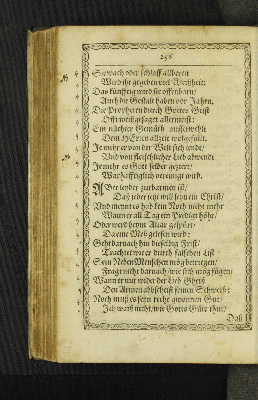 256
Sie wach oder schlaff allbereit
Wird ihr gegeben viel Weißheit:
Das künfftig wird sie offenbarn/
Auch die Gestalt haben vor Jahrn.
Die Propheten durch Gottes Geist
Offt weißgesaget allermeist:
Ein nüchter Gemüth außerwehlt
Dem HErrn allzeit wolgefällt.
Je mehr er von der Welt sich lendt/
Und von fleischlicher Lieb abwendt
Je mehr es Gott selber geziert/
Warhafftiglich vereinigt wird.
Aber leyder zurbarmen ist/
Daß jeder jetzt will seyn ein Christ/
Und meynt es hab kein Noth nicht mehr
Wann er all Tag ein Predigt höhr/
Oder werd beym Altar gespürt/
Da eine Meß gelesen wird:
Geht darnach hin dieselbig Frist/
Trachtet wie er durch falschen List
Sein Neben Menschen mög betriegen/
Fragt nicht darnach/wie sichs mög fügen/
Wann er nur wider der Lieb Gheiß
Den Armen abscheißt seinen Schweiß:
Noch muß es seyn recht gwonnen Gut/
Ich weiß nicht/wie Gotts Güte thut/
Daß